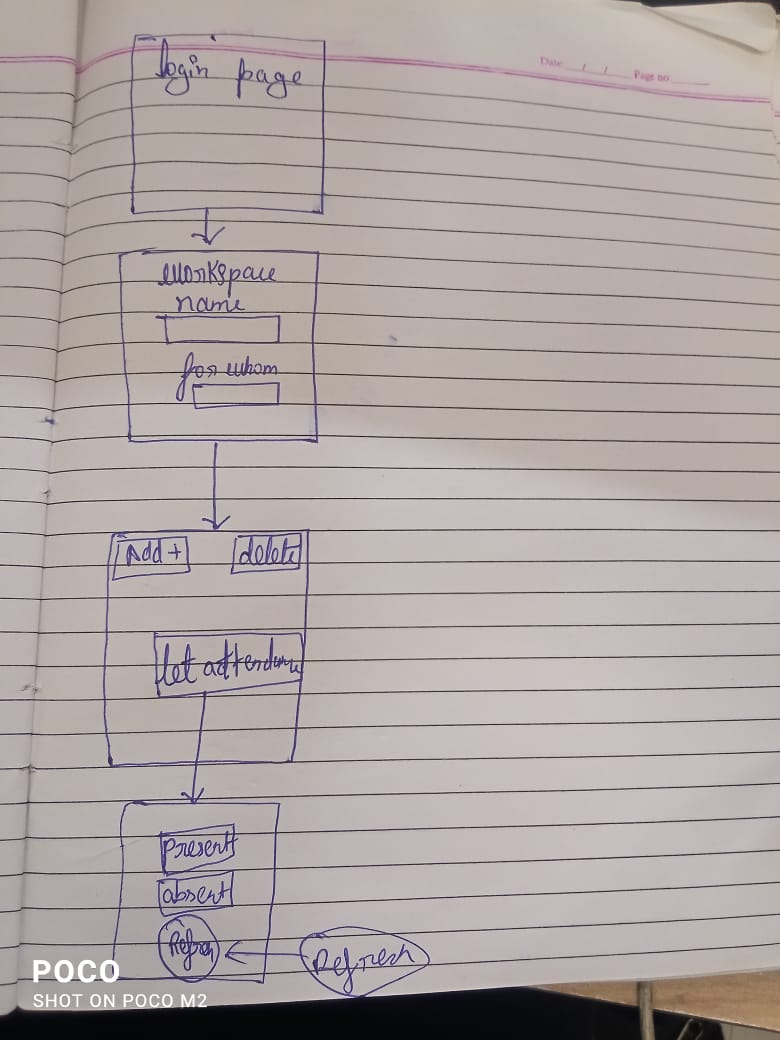 Date / / Page no.
login page
workspace
name
for whom
Add + delete
let attendance
Present
absent
Refresh
POCO
SHOT ON POCO M2